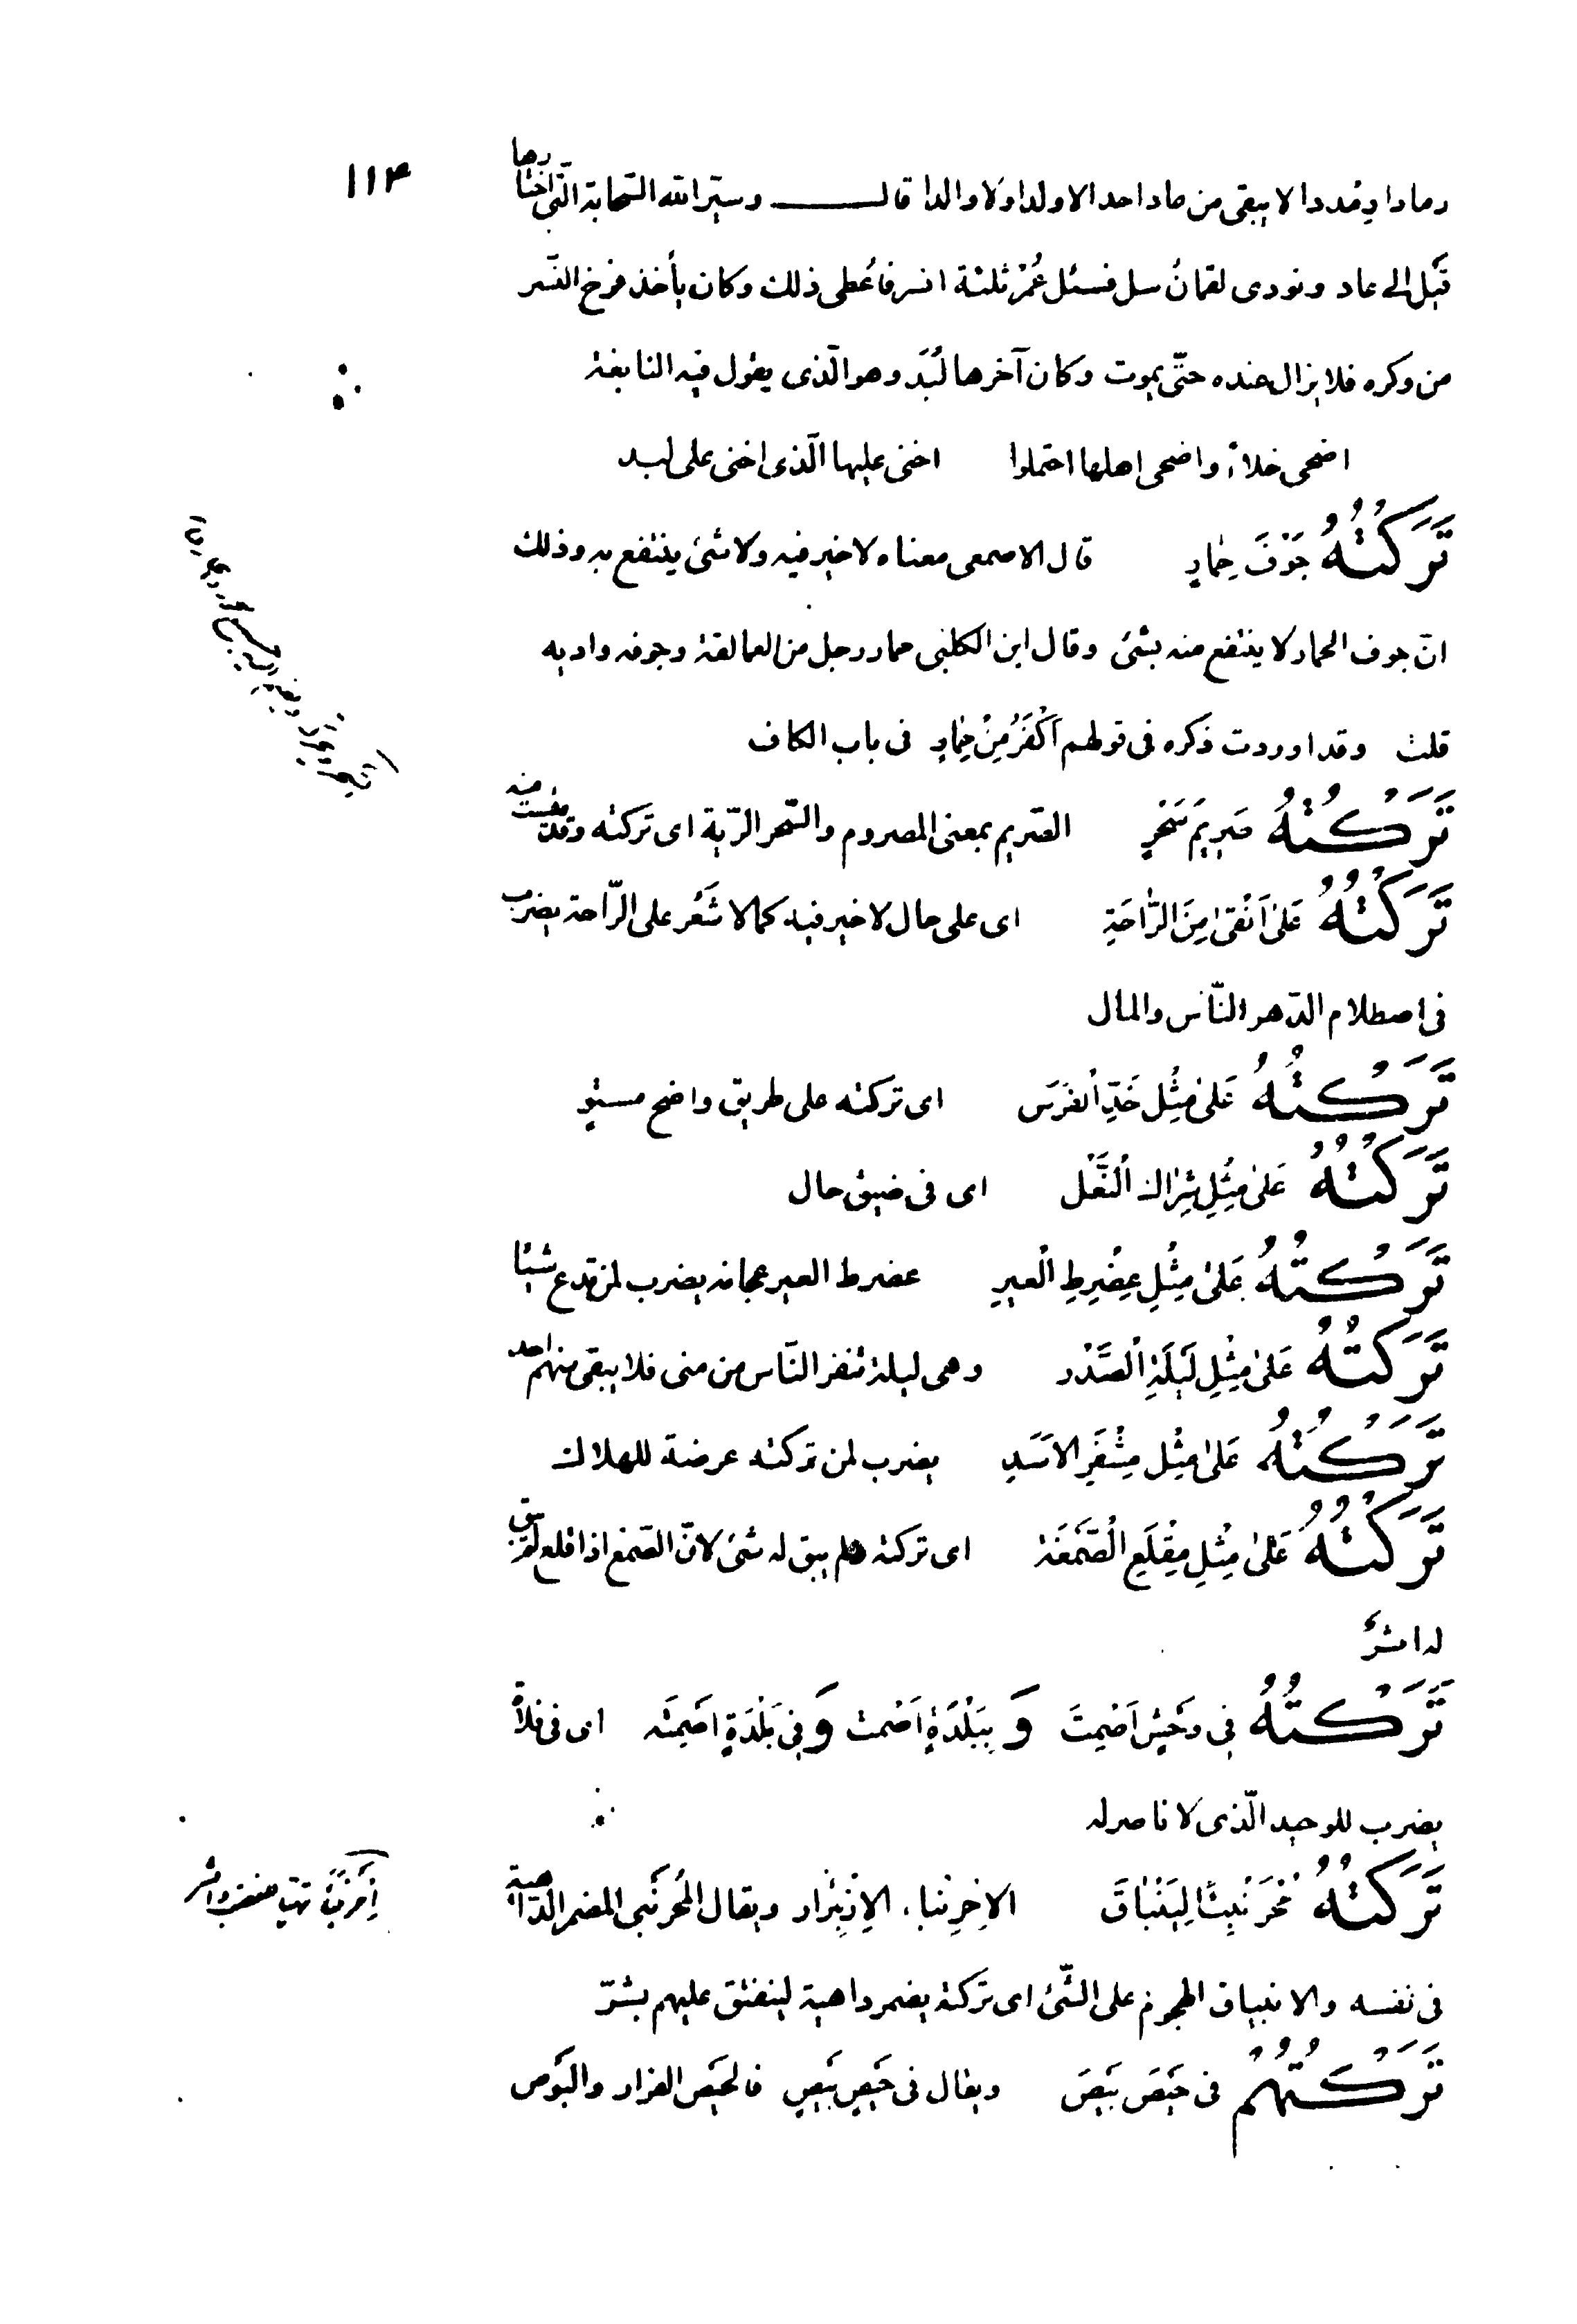 ١١٤
رمادا رمددا لا يبقى من عاد احدا لا ولدا ولا والدا قال وسيّر الله السّحابة الّتى اختارها
قيل الى عاد ونودى لقمان سل فسئل عُمْرَ ثلثة انسر فاُعطى ذلك وكان يأخذ فرخ النّسر
من وكره فلا يزال عنده حتّى يموت وكان آخرها لُبَد وهو الّذى يقول فيه النابغة
اضحى خلاءً واضحى اهلها احتملوا اخنى عليها الّذى اخنى على لبد
تَرَكْتُهُ جَوْفَ حِمٰارٍ قال الاصمعى معناه لا خير فيه ولا شئ ينتفع به وذلك
انّ جوف الحمار لا ينتفع منه بشئ وقال ابن الكلبى حمار رجل من العمالقة وجوفه واديه
قلت وقد اوردت ذكره فى قولهم اَكْفَرُ مِنْ حِمٰارٍ فى باب الكاف
تَرَكْتُهُ صَرِيمَ سَحْرٍ الصّريم بمعنى المصروم والسّحر الرّية اى تركته وقد يئست منه
تَرَكْتُهُ عَلىٰ اَنْقىٰ مِنَ الرّٰاحَةِ اى على حال لا خير فيه كما لا شَعْر على الرّاحة يضرب
فى اصطلام الدّهر النّاس والمال
تَرَكْتُهُ عَلىٰ مِثْلِ خَدِّ الْفَرَسِ اى تركته على طريق واضح مستوٍ
تَرَكْتُهُ عَلىٰ مِثْلِ شِرٰاك الْنَّعْل اى فى ضيق حال
تَرَكْتُهُ عَلىٰ مِثْلِ عِضْرِطِ الْعيرِ عضرط العير عجانه يضرب لمن لم تدع له شيئا
تَرَكْتُهُ عَلىٰ مِثْلِ لَيْلَةِ الْصَّدَر وهى ليلة تنفر النّاس من منى فلا يبقى منهم احد
تَرَكْتُهُ عَلىٰ مِثْل مِشْفَرِ الاَسَدِ يضرب لمن تركته عرضة للهلاك
تَرَكْتُهُ عَلىٰ مِثْلِ مِقْلَعِ الْصَّمْغَة اى تركته ولم يبق له شئ لانّ الصّمغ اذا قلع لم يبق
له اثرٌ
تَرَكْتُهُ فِى وَحْشٍ اَصْمِتَ وَ بِبَلْدَةِ اَصْمت وَفِى بَلْدَةٍ اصْمِتَه اى فى فلاة
يضرب للوحيد الّذى لا ناصر له
تَرَكْتُهُ مُخْرَنْبِئًا لِيَنْبٰاقَ الاِخرِنْباء الاِزْبِئْرار ويقال المُخْرنْبى المضمر الدّاهية
فى نفسه والانبياق الهجوم على الشّئ اى تركته يضمر داهية لينفتق عليهم بشرّ
تَرَكْتُهُمْ فى حَيْصَ بَيْصَ ويقال فى حَيْصٍ بَيْصٍ فالحَيْص الفرار والبَوْص